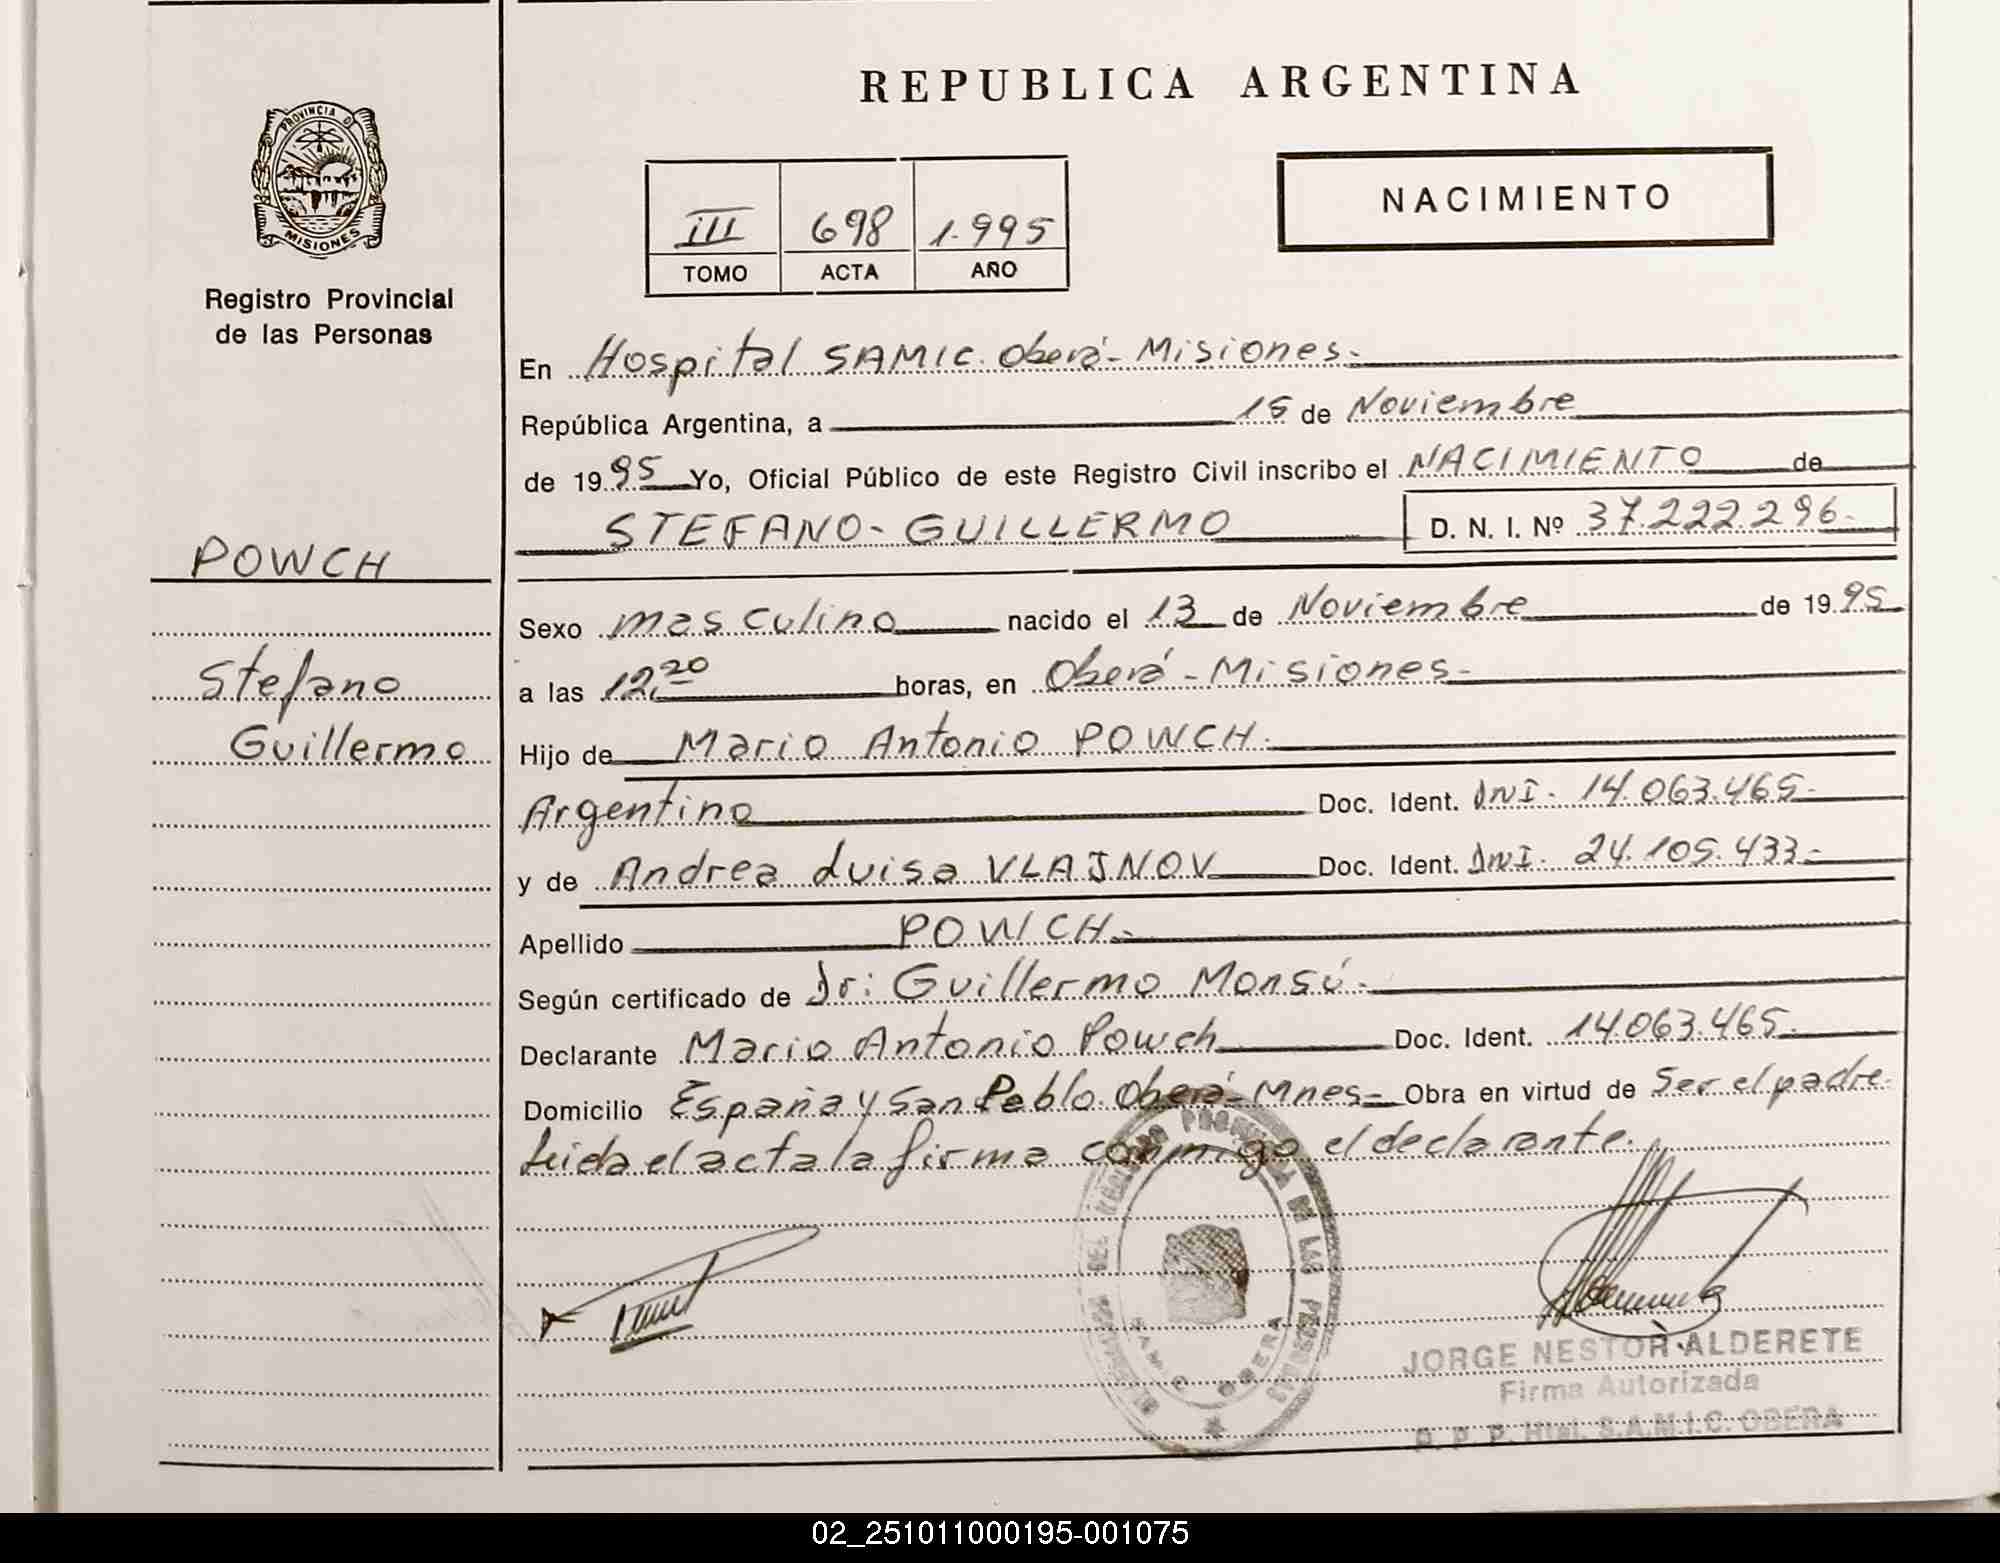 REPUBLICA ARGENTINA
PROVINCIA DE
MISIONES
Registro Provincial
de las Personas
III 698 1.995
TOMO ACTA AÑO
NACIMIENTO
En Hospital SAMIC. Oberá - Misiones.-
República Argentina, a 15 de Noviembre
de 1995 Yo, Oficial Público de este Registro Civil inscribo el NACIMIENTO de
STEFANO - GUILLERMO D. N. I. Nº 37.222.296.-
POWCH
Stefano
Guillermo
Sexo masculino nacido el 13 de Noviembre de 1995
a las 12,20 horas, en Oberá - Misiones.-
Hijo de Mario Antonio POWCH.-
Argentino Doc. Ident. DNI. 14.063.465.-
y de Andrea Luisa VLAJNOV Doc. Ident. DNI. 24.105.433.-
Apellido POWCH.-
Según certificado de Dr: Guillermo Monsú.-
Declarante Mario Antonio Powch Doc. Ident. 14.063.465.-
Domicilio España y San Pablo. Oberá - Mnes.- Obra en virtud de Ser el padre.
Leida el acta la firma conmigo el declarante.-
SAMIC OBERA
JORGE NESTOR ALDERETE
Firma Autorizada
R. P. P. Htal. S.A.M.I.C. OBERA
02_251011000195-001075